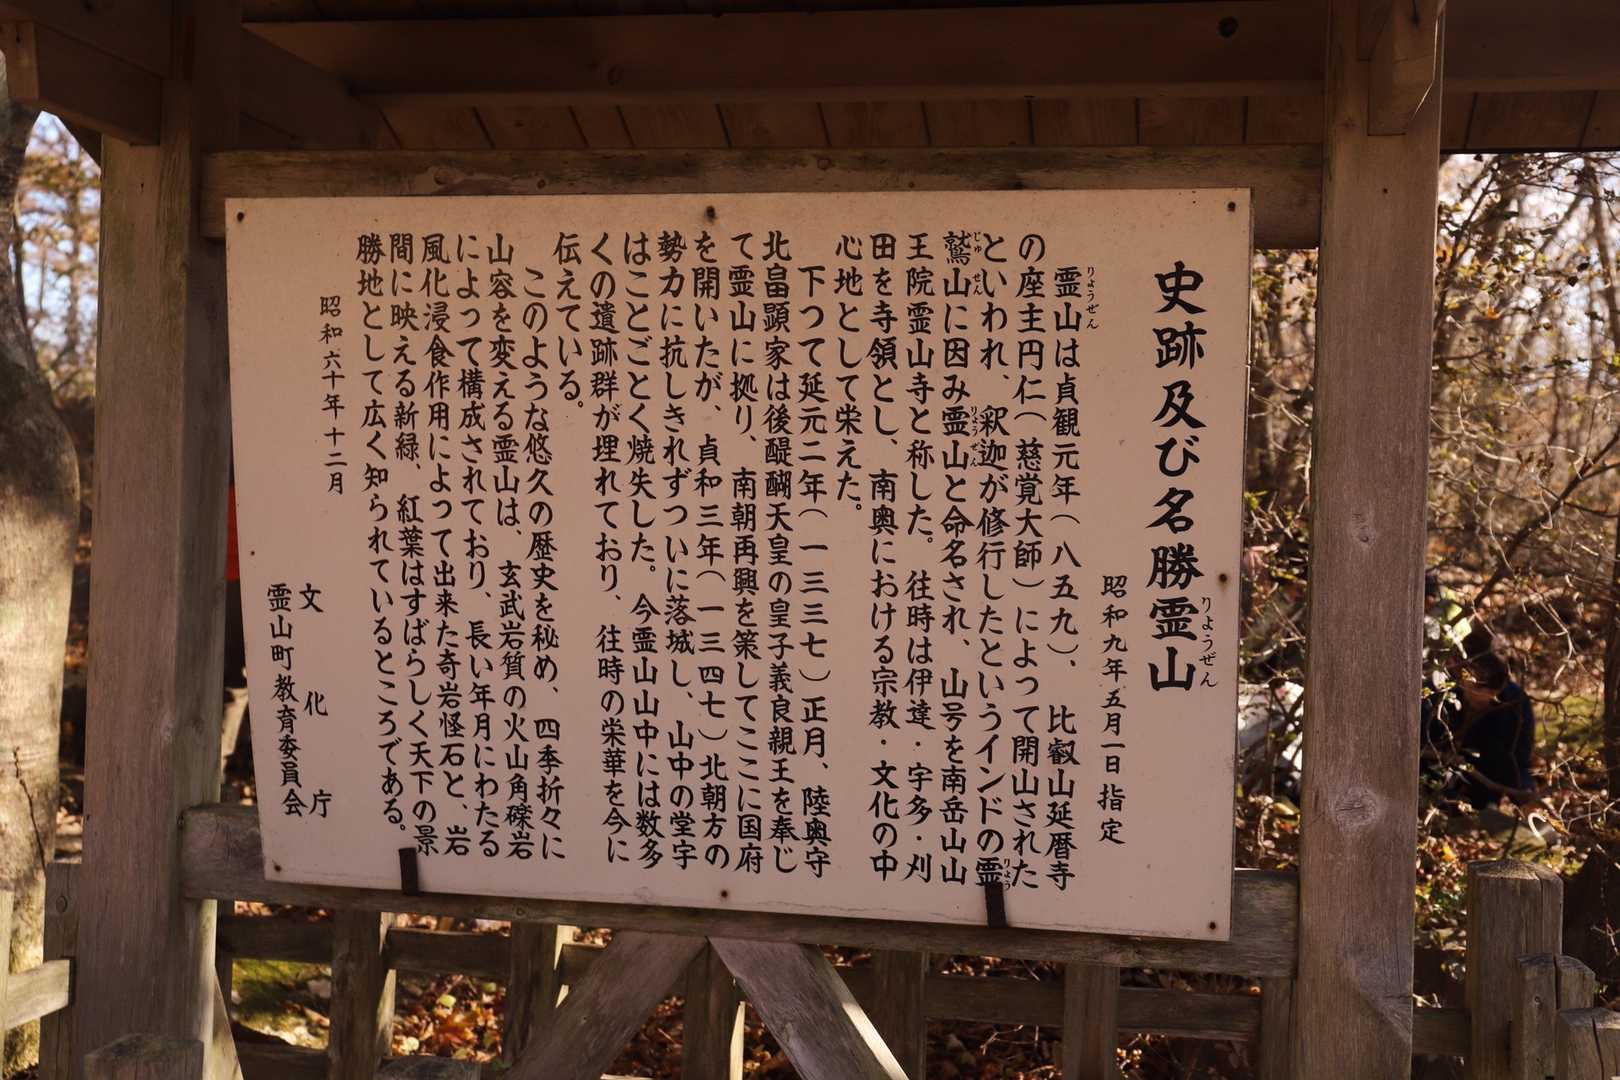 史跡及び名勝霊山
りようぜん
昭和九年五月一日指定
霊山は貞観元年(八五九)、比叡山延暦寺
りようぜん
の座主円仁(慈覚大師)によって開山された
といわれ、釈迦が修行したというインドの霊
りよう
鷲山に因み霊山と命名され、山号を南岳山山
じゅせん
りようぜん
王院霊山寺と称した。往時は伊達・宇多・刈
田を寺領とし、南奥における宗教・文化の中
心地として栄えた。
下つて延元二年(一三三七)正月、陸奥守
北畠顕家は後醍醐天皇の皇子義良親王を奉じ
て霊山に拠り、南朝再興を策してここに国府
を開いたが、貞和三年(一三四七)北朝方の
勢力に抗しきれずついに落城し、山中の堂宇
はことごとく焼失した。今霊山山中には数多
くの遺跡群が埋れており、往時の栄華を今に
伝えている。
このような悠久の歴史を秘め、四季折々に
山容を変える霊山は、玄武岩質の火山角礫岩
によって構成されており、長い年月にわたる
風化浸食作用によって出来た奇岩怪石と、岩
間に映える新緑、紅葉はすばらしく天下の景
勝地として広く知られているところである。
昭和六十年十二月
文化庁
霊山町教育委員会